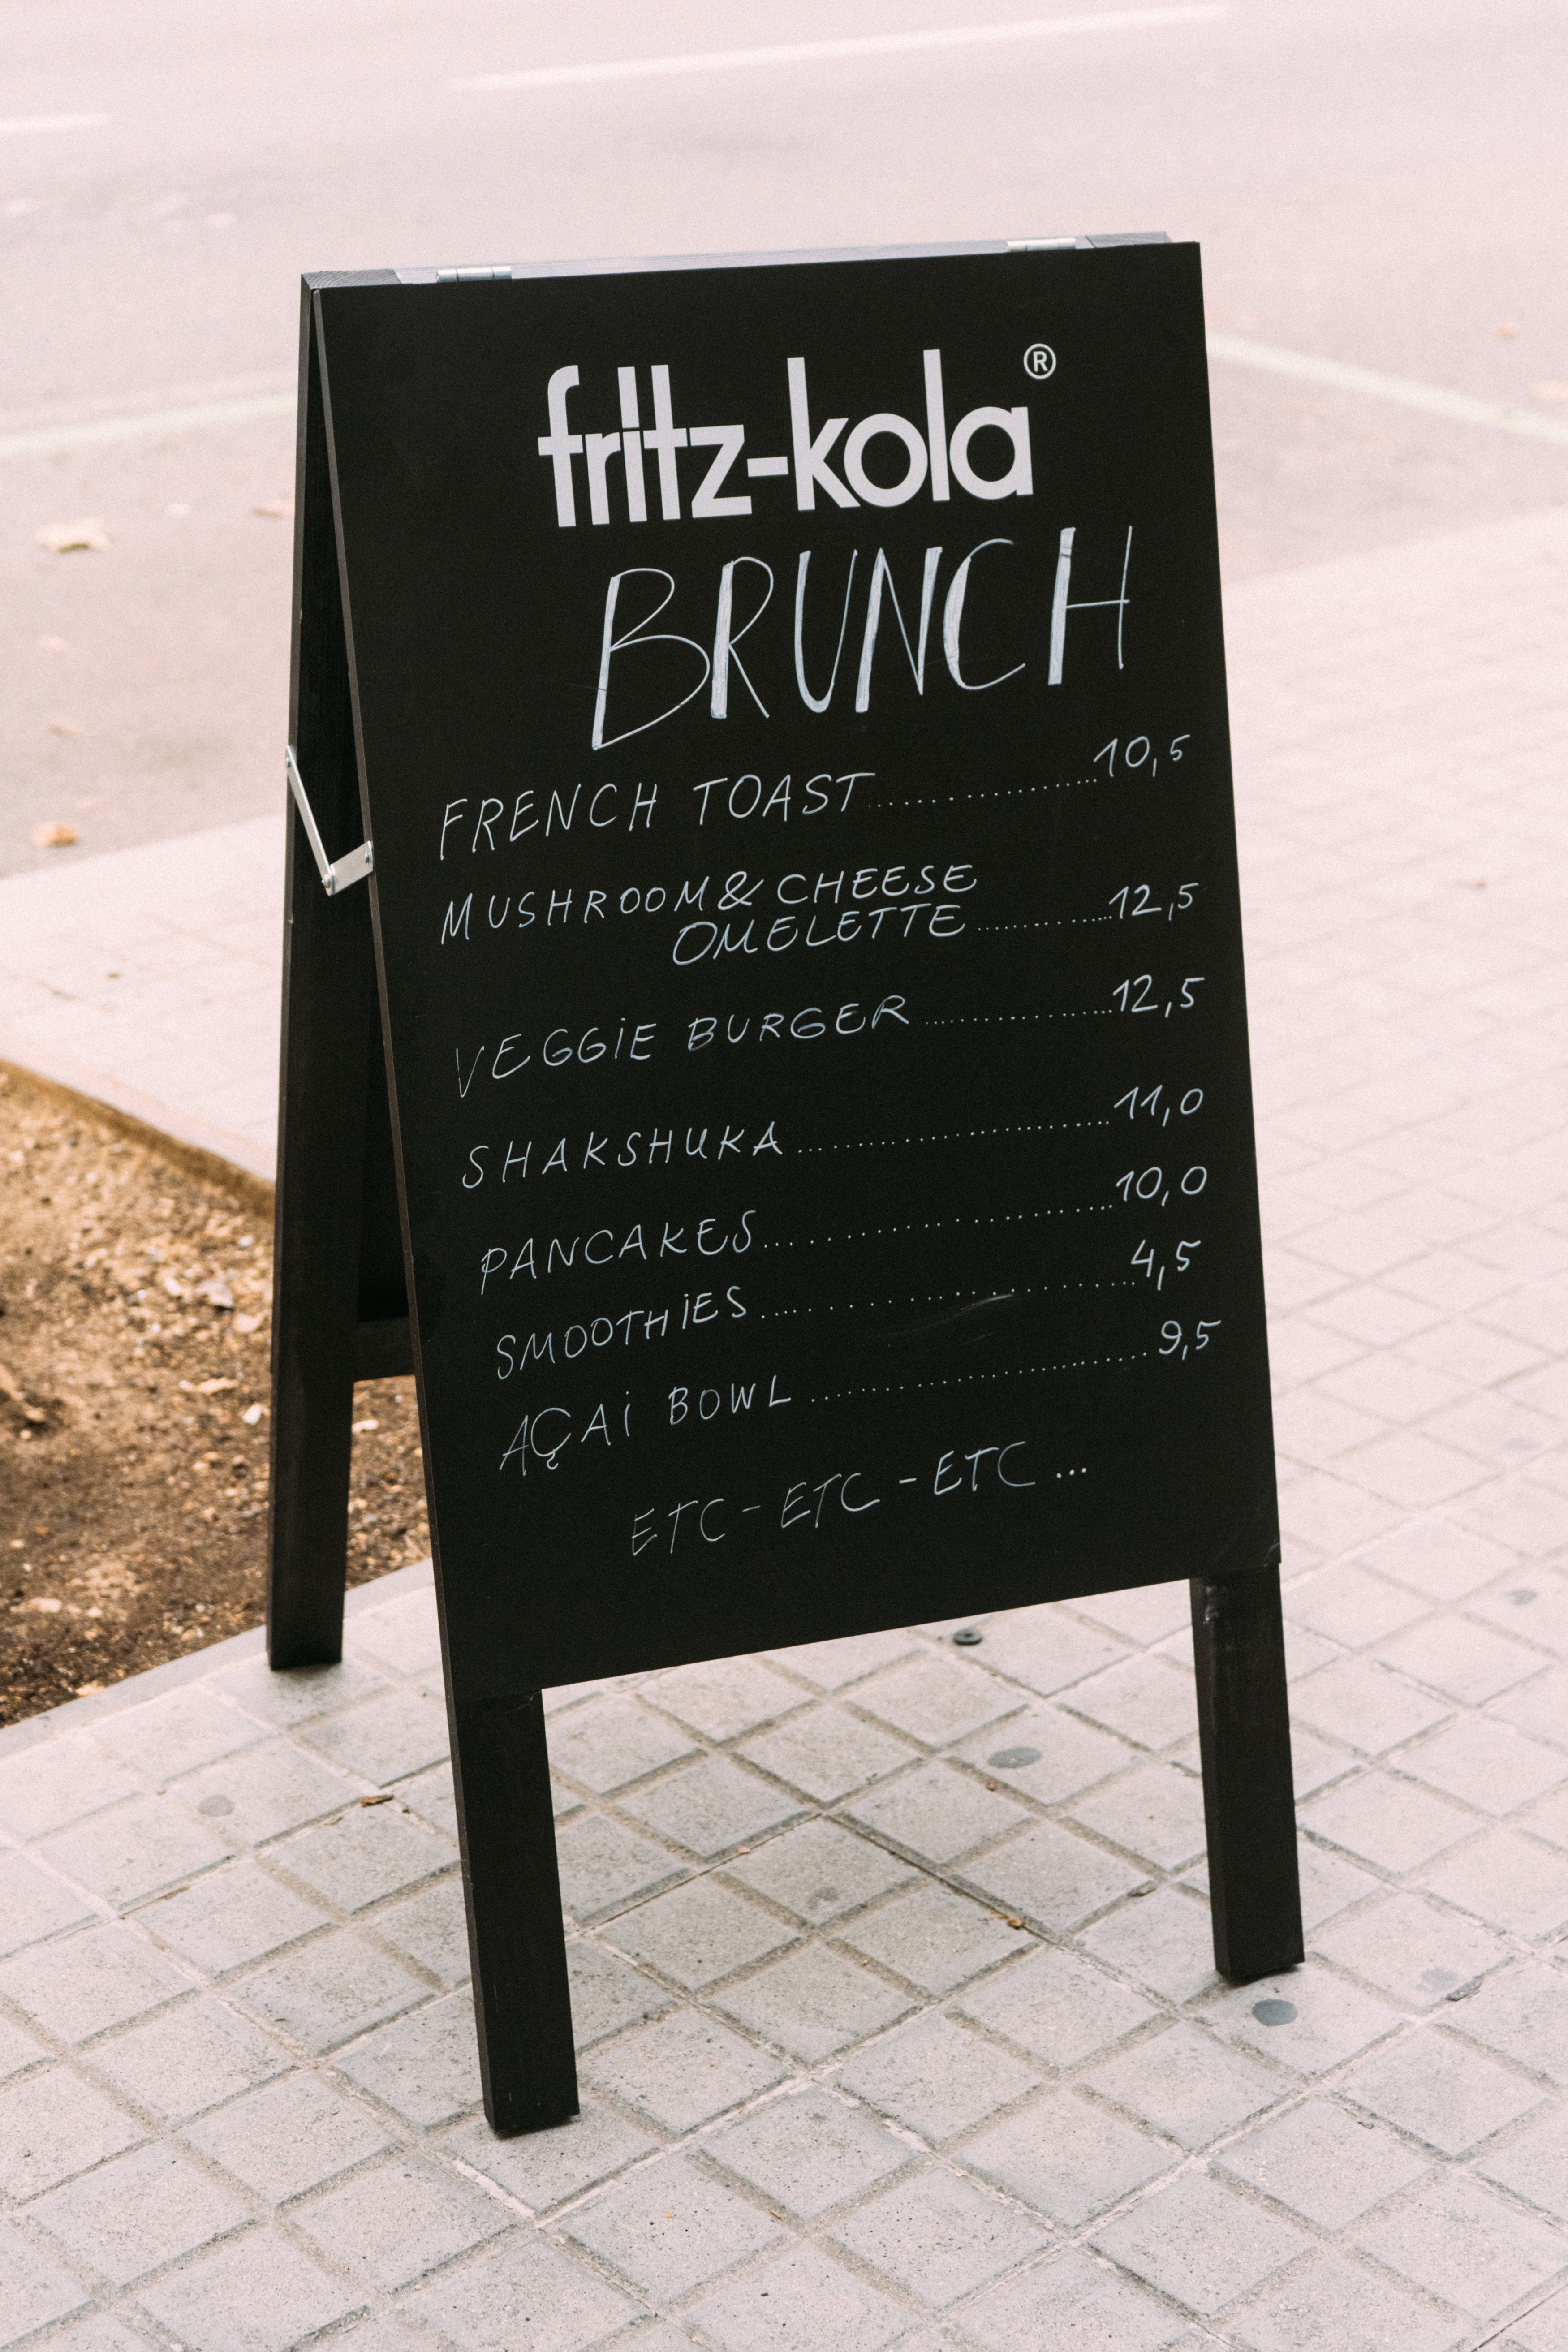 fritz-kola®
BRUNCH
FRENCH TOAST..................10,5
MUSHROOM & CHEESE
OMELETTE.............12,5
VEGGIE BURGER.............12,5
SHAKSHUKA......................11,0
PANCAKES......................10,0
SMOOTHIES......................4,5
AÇAi BOWL......................9,5
ETC - ETC - ETC...